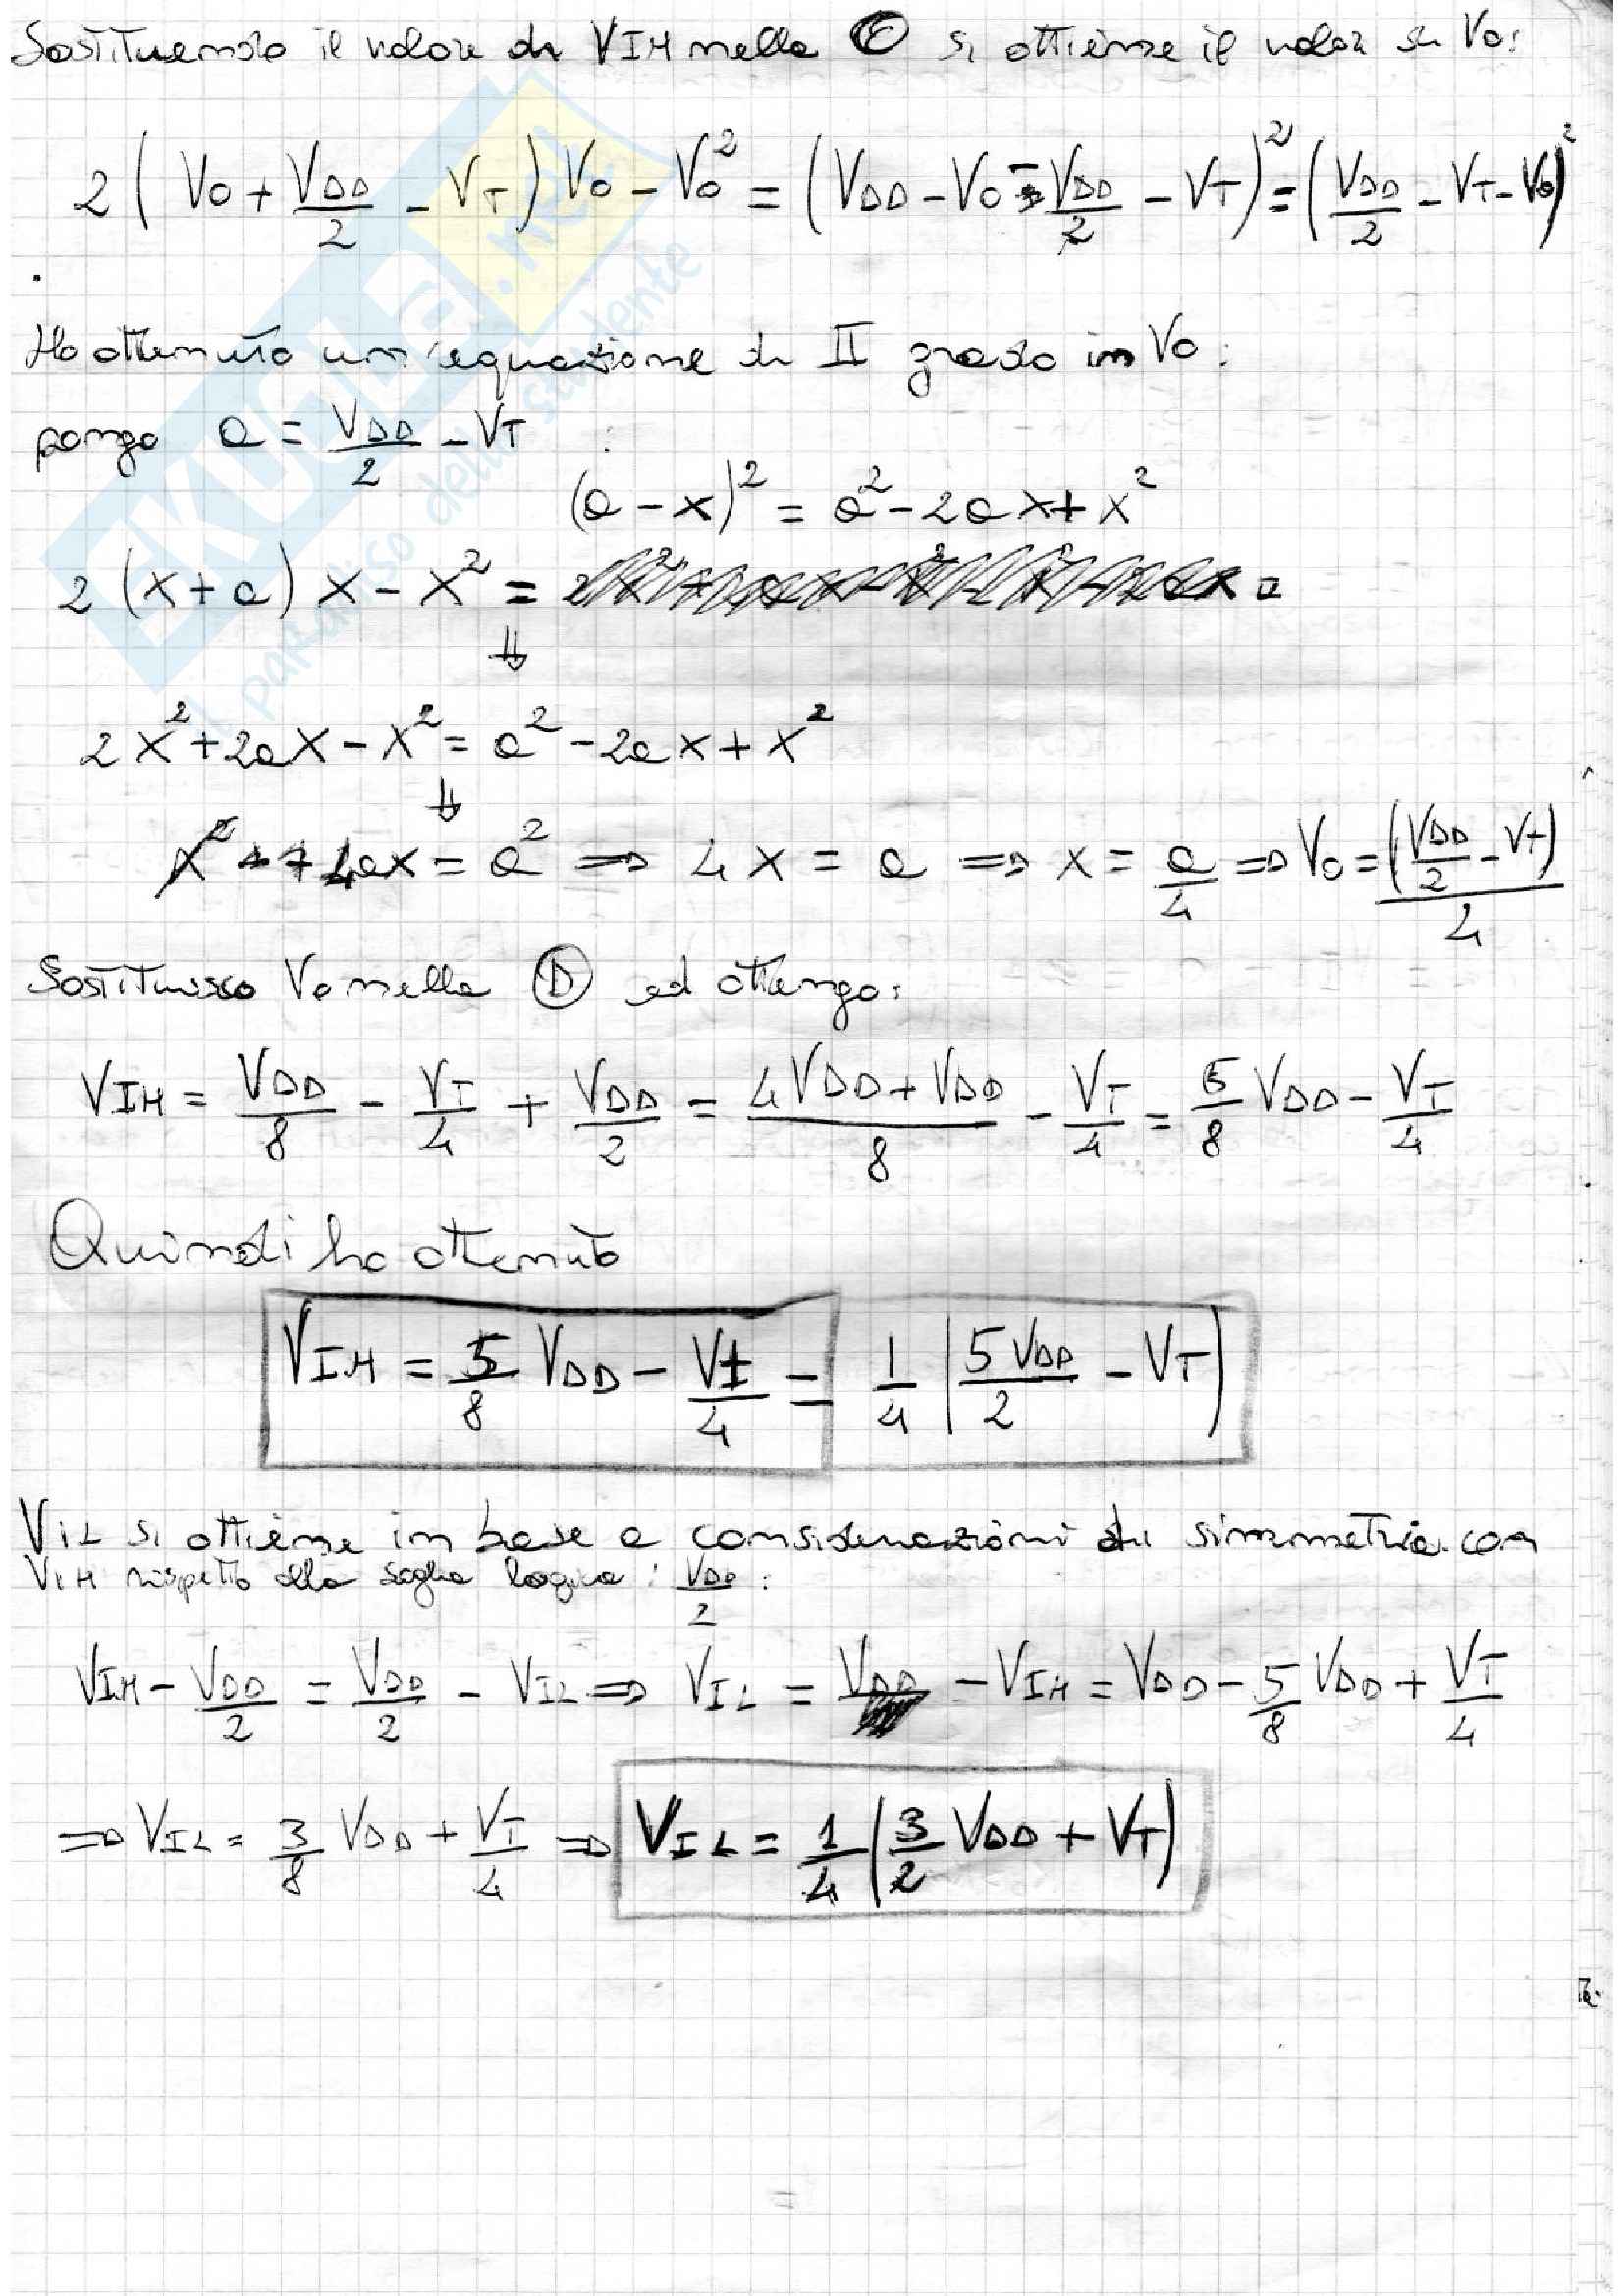 Sostituendo il valore di VIH nella C si ottiene il valor di Vo:
2 ( Vo + VDD/2 - VT ) Vo - Vo² = ( VDD - Vo - VDD/2 - VT )² = ( VDD/2 - VT - Vo )²
Ho ottenuto un'equazione di II grado in Vo:
pongo a = VDD/2 - VT :
(a - x)² = a² - 2ax + x²
2 (x + a) x - x² =
⇓
2x² + 2ax - x² = a² - 2ax + x²
⇓
x² + 4ax = a² ⇒ 4x = a ⇒ x = a/4 ⇒ Vo = (VDD/2 - VT)/4
Sostituisco Vo nella D ed ottengo:
VIH = VDD/8 - VT/4 + VDD/2 = (4VDD + VDD)/8 - VT/4 = 5/8 VDD - VT/4
Quindi ho ottenuto
VIH = 5/8 VDD - VT/4 = 1/4 ( 5VDD/2 - VT )
VIL si ottiene in base a considerazioni di simmetria con
VIH rispetto alla soglia logica : VDD/2 :
VIH - VDD/2 = VDD/2 - VIL ⇒ VIL = VDD - VIH = VDD - 5/8 VDD + VT/4
⇒ VIL = 3/8 VDD + VT/4 ⇒ VIL = 1/4 ( 3/2 VDD + VT )
EKUCLA.net
il paradiso dello studente